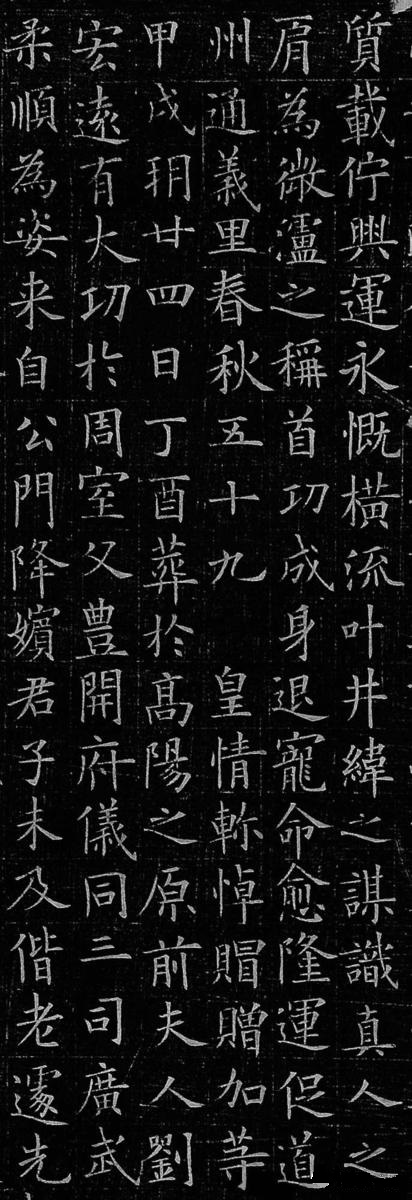 質載佇興運永慨橫流叶井緯之謀識真人之
為微瀘之稱首功成身退寵命愈隆運促道
州通義里春秋五十九皇情軫悼賵贈加等
甲戌玥廿四日丁酉葬於髙陽之原前夫人劉
宏遠有大功於周室父豊開府儀同三司廣武
柔順為姿来自公門降嬪君子未及偕老遽先